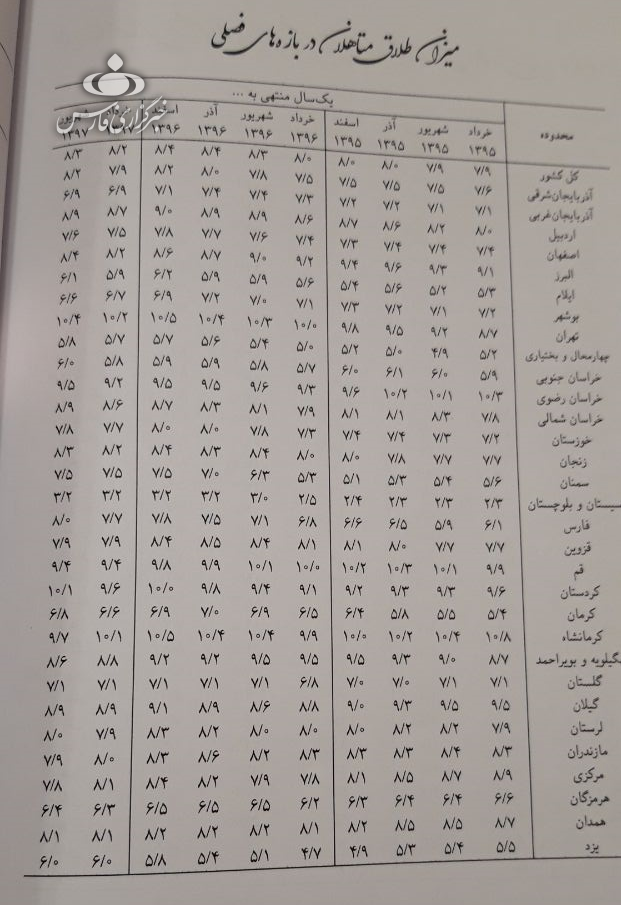 میزان طلاق متاهلان در بازه‌های فصلی
خبرگزاری فارس
محدوده یک سال منتهی به ...
خرداد شهریور آذر اسفند خرداد شهریور آذر اسفند
۱۳۹۵ ۱۳۹۵ ۱۳۹۵ ۱۳۹۵ ۱۳۹۶ ۱۳۹۶ ۱۳۹۶ ۱۳۹۶ ۱۳۹۷
کل کشور ۷/۹ ۷/۹ ۸/۰ ۸/۰ ۸/۰ ۸/۳ ۸/۴ ۸/۴ ۸/۲ ۸/۳
آذربایجان شرقی ۷/۶ ۷/۵ ۷/۵ ۷/۵ ۷/۵ ۷/۸ ۸/۰ ۸/۲ ۷/۹ ۸/۲
آذربایجان غربی ۷/۱ ۷/۱ ۷/۲ ۷/۲ ۷/۳ ۷/۴ ۷/۴ ۷/۱ ۶/۹ ۶/۹
اردبیل ۸/۰ ۸/۲ ۸/۶ ۸/۷ ۸/۶ ۸/۹ ۸/۹ ۹/۰ ۸/۷ ۸/۹
اصفهان ۷/۴ ۷/۴ ۷/۴ ۷/۳ ۷/۴ ۷/۶ ۷/۷ ۷/۸ ۷/۵ ۷/۶
البرز ۹/۱ ۹/۳ ۹/۶ ۹/۴ ۹/۲ ۹/۰ ۸/۷ ۸/۶ ۸/۲ ۸/۴
ایلام ۵/۳ ۵/۲ ۵/۶ ۵/۴ ۵/۶ ۵/۹ ۵/۹ ۶/۲ ۵/۹ ۶/۱
بوشهر ۷/۲ ۷/۱ ۷/۲ ۷/۳ ۷/۱ ۷/۰ ۷/۲ ۶/۹ ۶/۷ ۶/۶
تهران ۸/۷ ۹/۲ ۹/۵ ۹/۸ ۱۰/۰ ۱۰/۳ ۱۰/۴ ۱۰/۵ ۱۰/۲ ۱۰/۴
چهارمحال و بختیاری ۵/۲ ۴/۹ ۵/۰ ۵/۲ ۵/۰ ۵/۴ ۵/۶ ۵/۷ ۵/۷ ۵/۸
خراسان جنوبی ۵/۹ ۶/۰ ۶/۱ ۶/۰ ۵/۷ ۵/۸ ۵/۹ ۵/۹ ۵/۸ ۶/۰
خراسان رضوی ۱۰/۳ ۱۰/۱ ۱۰/۲ ۹/۶ ۹/۳ ۹/۶ ۹/۵ ۹/۵ ۹/۲ ۹/۵
خراسان شمالی ۷/۸ ۸/۳ ۸/۱ ۸/۱ ۷/۹ ۸/۱ ۸/۳ ۸/۷ ۸/۶ ۸/۹
خوزستان ۷/۲ ۷/۳ ۷/۴ ۷/۴ ۷/۳ ۷/۸ ۸/۰ ۸/۰ ۷/۷ ۷/۸
زنجان ۷/۷ ۷/۷ ۷/۸ ۸/۰ ۸/۰ ۸/۴ ۸/۳ ۸/۴ ۸/۲ ۸/۳
سمنان ۵/۶ ۵/۴ ۵/۳ ۵/۱ ۵/۳ ۶/۳ ۷/۰ ۷/۵ ۷/۵ ۷/۵
سیستان و بلوچستان ۲/۳ ۲/۳ ۲/۳ ۲/۴ ۲/۵ ۳/۰ ۳/۲ ۳/۲ ۳/۲ ۳/۲
فارس ۶/۱ ۵/۹ ۶/۵ ۶/۶ ۶/۸ ۷/۱ ۷/۵ ۷/۸ ۷/۷ ۸/۰
قزوین ۷/۷ ۷/۷ ۸/۰ ۸/۱ ۸/۱ ۸/۴ ۸/۵ ۸/۴ ۷/۹ ۷/۹
قم ۹/۹ ۱۰/۱ ۱۰/۳ ۱۰/۲ ۱۰/۰ ۱۰/۱ ۹/۹ ۹/۸ ۹/۴ ۹/۴
کردستان ۹/۶ ۹/۳ ۹/۳ ۹/۲ ۹/۱ ۹/۴ ۹/۸ ۱۰/۰ ۹/۶ ۱۰/۱
کرمان ۵/۴ ۵/۵ ۵/۸ ۶/۴ ۶/۵ ۶/۹ ۷/۰ ۶/۹ ۶/۶ ۶/۸
کرمانشاه ۱۰/۸ ۱۰/۴ ۱۰/۲ ۱۰/۰ ۹/۹ ۱۰/۴ ۱۰/۴ ۱۰/۵ ۱۰/۱ ۹/۷
گیلویه و بویراحمد ۸/۷ ۹/۰ ۹/۳ ۹/۵ ۹/۵ ۹/۵ ۹/۲ ۹/۲ ۸/۸ ۸/۶
گلستان ۷/۱ ۷/۱ ۷/۰ ۷/۰ ۶/۸ ۷/۱ ۷/۱ ۷/۱ ۷/۱ ۷/۱
گیلان ۹/۵ ۹/۵ ۹/۳ ۹/۰ ۸/۸ ۸/۶ ۸/۹ ۹/۱ ۸/۹ ۸/۹
لرستان ۷/۹ ۸/۲ ۸/۲ ۸/۰ ۸/۰ ۸/۰ ۸/۲ ۸/۳ ۷/۹ ۸/۰
مازندران ۸/۳ ۸/۴ ۸/۳ ۸/۳ ۸/۳ ۸/۲ ۸/۶ ۸/۳ ۸/۰ ۷/۹
مرکزی ۸/۹ ۸/۷ ۸/۵ ۸/۱ ۷/۸ ۷/۹ ۸/۲ ۸/۴ ۸/۱ ۷/۸
هرمزگان ۶/۶ ۶/۴ ۶/۴ ۶/۳ ۶/۲ ۶/۵ ۶/۵ ۶/۵ ۶/۳ ۶/۴
همدان ۸/۷ ۸/۵ ۸/۵ ۸/۲ ۸/۱ ۸/۲ ۸/۲ ۸/۲ ۸/۱ ۸/۱
یزد ۵/۵ ۵/۴ ۵/۳ ۴/۹ ۴/۷ ۵/۱ ۵/۴ ۵/۸ ۶/۰ ۶/۰